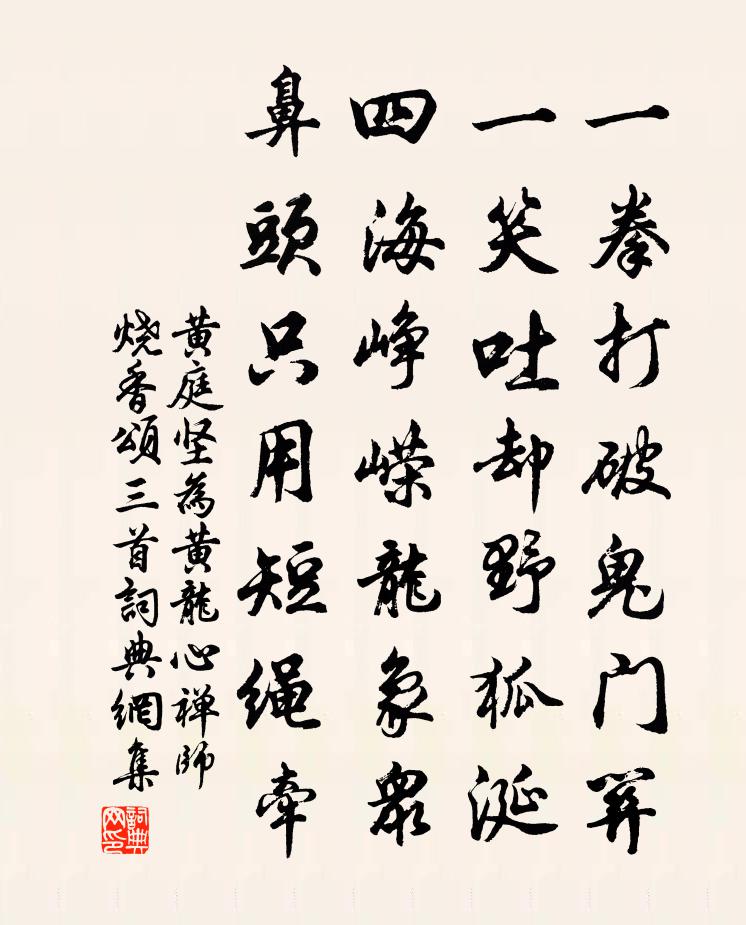 一拳打破鬼门関
一笑吐却野狐涎
四海峥嵘龍象衆
鼻頭只用短绳牵
黄庭坚為黄龍心禅师
烧香頌三首詞典網集
詞典
网印